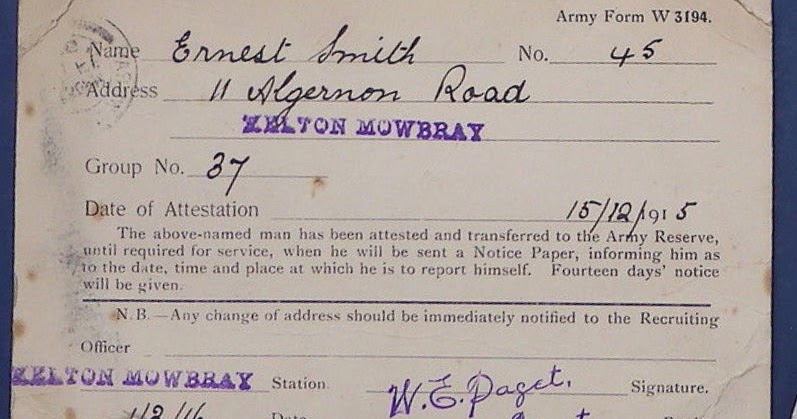 Army Form W 3194.
Name Ernest Smith No. 45
Address 11 Algernon Road
MELTON MOWBRAY
Group No. 37
Date of Attestation 15/12/1915
The above-named man has been attested and transferred to the Army Reserve,
until required for service, when he will be sent a Notice Paper, informing him as
to the date, time and place at which he is to report himself. Fourteen days' notice
will be given.
N.B.—Any change of address should be immediately notified to the Recruiting
Officer
MELTON MOWBRAY Station. W.E. Paget, Signature.
Date